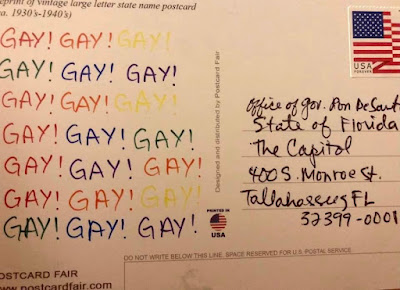 eprint of vintage large letter state name postcard
a. 1930's-1940's)
GAY! GAY! GAY!
GAY! GAY! GAY!
GAY! GAY! GAY!
GAY! GAY! GAY!
GAY! GAY! GAY!
GAY! GAY! GAY!
GAY! GAY! GAY!
PRINTED IN
USA
OSTCARD FAIR
www.postcardfair.com
Designed and distributed by Postcard Fair
USA
FOREVER
Office of Gov. Ron DeSant
State of Florida
The Capitol
400 S. Monroe St.
Tallahassee, FL
32399-0001
DO NOT WRITE BELOW THIS LINE. SPACE RESERVED FOR U.S. POSTAL SERVICE.